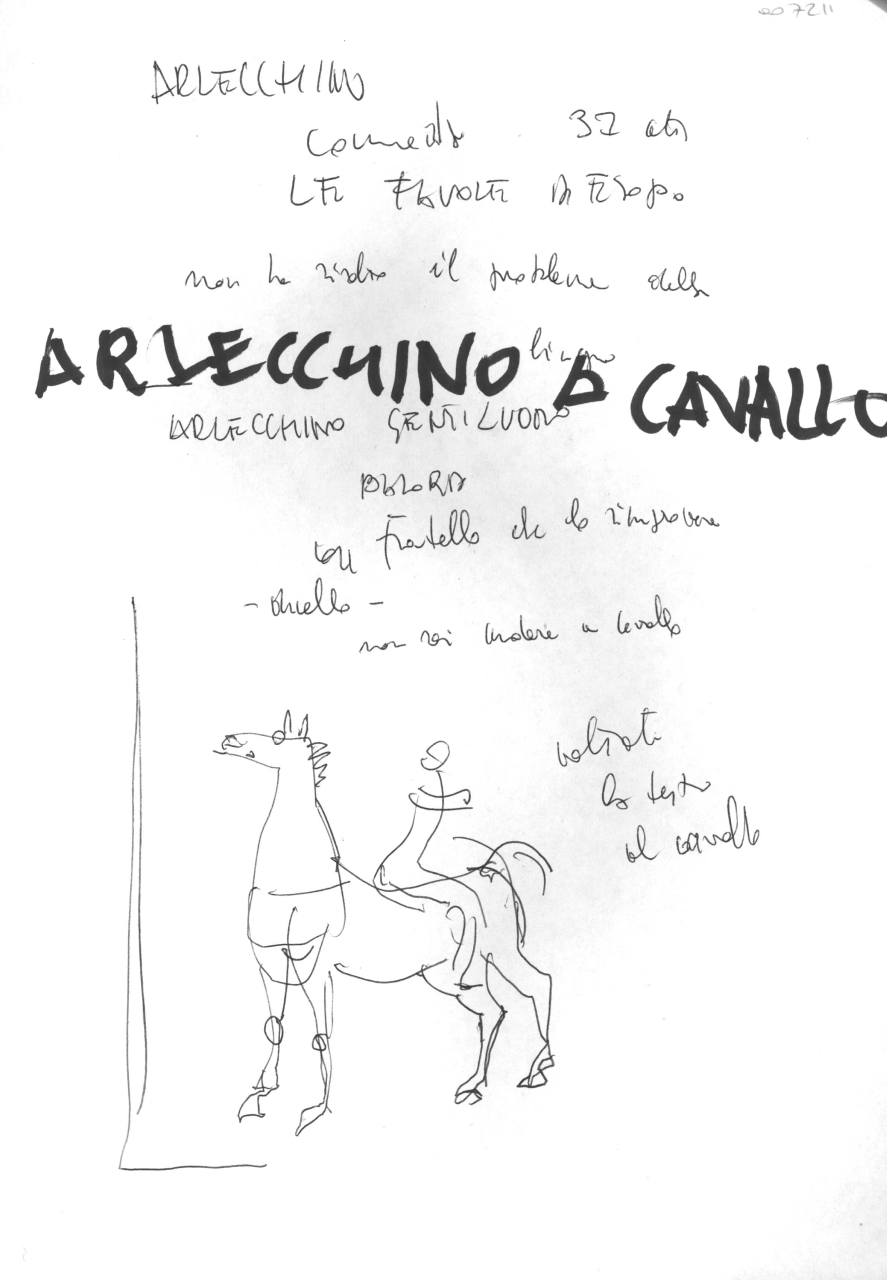 007211
ARLECCHINO
Commedia 3 atti
LE FAVOLE DI ESOPO
non ha risolto il problema della
lingua
ARLECCHINO A CAVALLO
ARLECCHINO GENTILUOMO
fratello che lo rimprovera
- duello -
non sai andare a cavallo
voltati
la testa
al cavallo